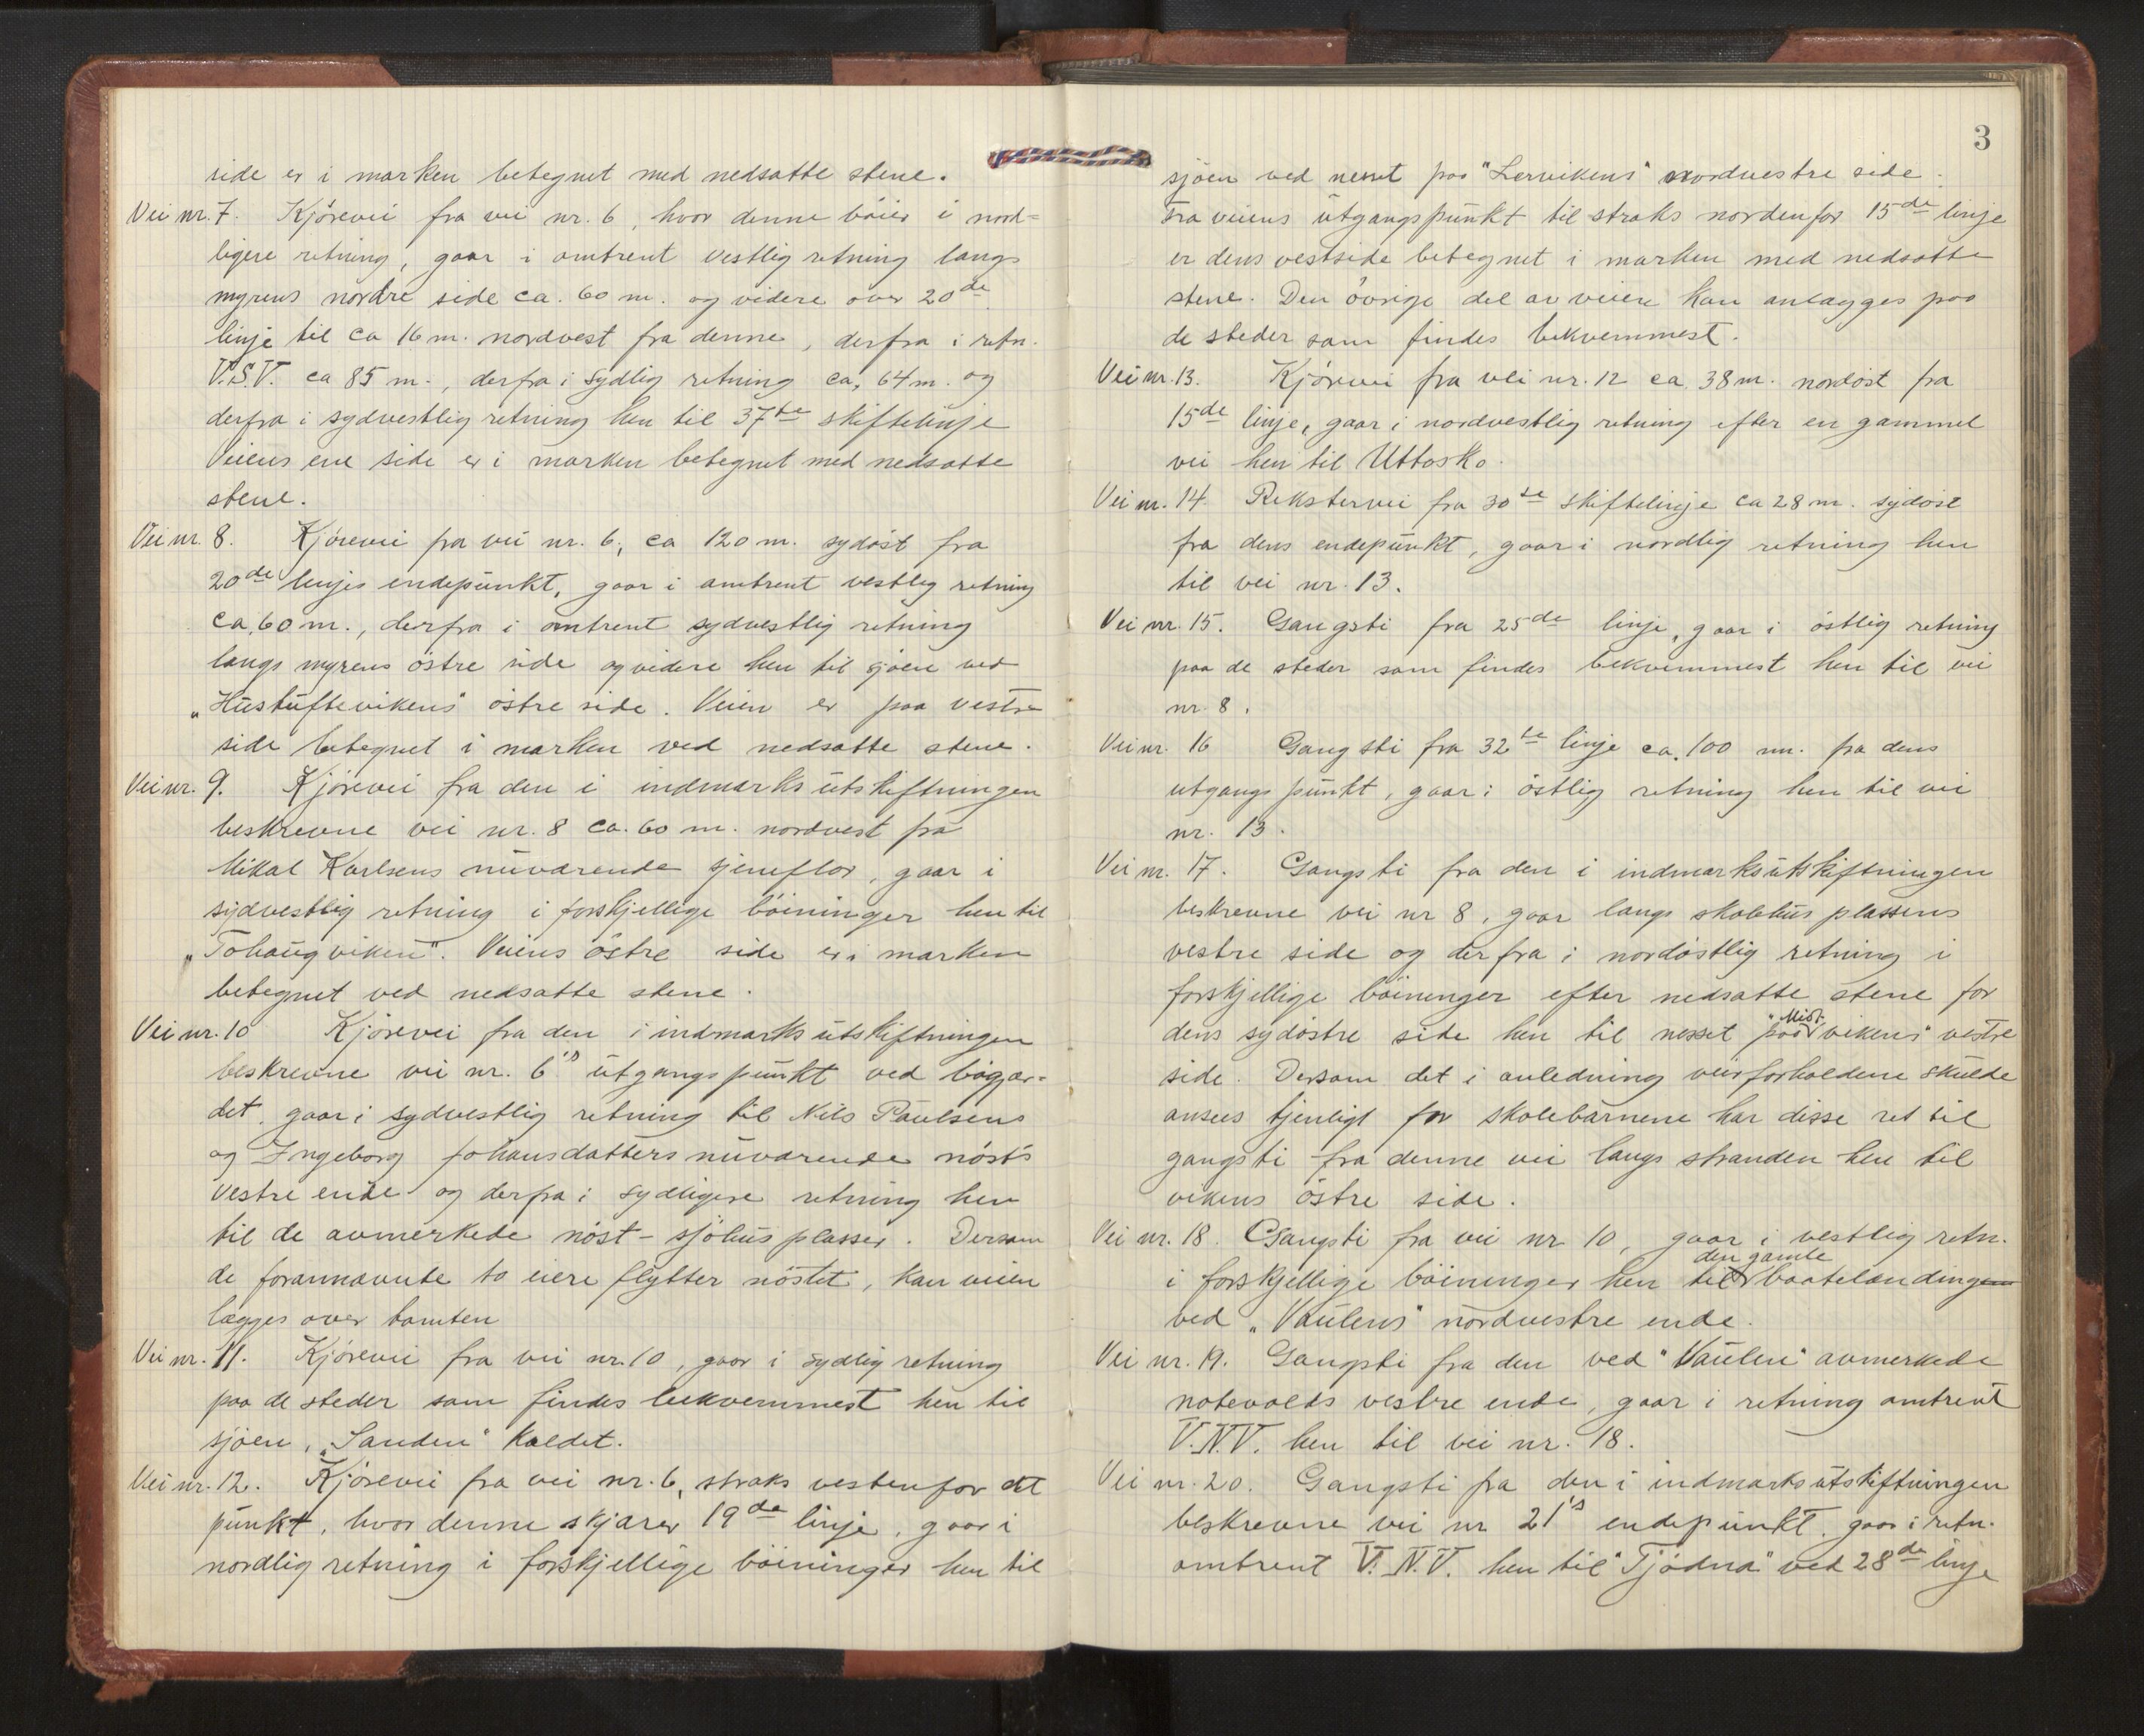 side er i marken betegnet med nedsatte stene.
Vei nr. 7. Kjörevei fra vei nr. 6, hvor denne böier i nord=
ligere retning, gaar i omtrent vestlig retning langs
myrens nordre side ca. 60 m. og videre over 20de
linje til ca 16 m. nordvest fra denne, derfra i retn.
V.S.V. ca 85 m., derfra i sydlig retning ca. 64 m. og
derfra i sydvestlig retning hen til 37te skiftelinje
Veiens ene side er i marken betegnet med nedsatte
stene.
Vei nr. 8. Kjörevei fra vei nr. 6, ca 120 m. sydöst fra
20de linjes endepunkt, gaar i omtrent vestlig retning
ca. 60 m., derfra i omtrent sydvestlig retning
langs myrens östre side og videre hen til sjöen ved
„Hustuftevikens" östre side. Veien er paa vestre
side betegnet i marken ved nedsatte stene.
Vei nr. 9. Kjörevei fra den i indmarksutskiftningen
beskrevne vei nr. 8 ca. 60 m. nordvest fra
Mikal Karlsens nuværende sjeneflor, gaar i
sydvestlig retning i forskjellige böininger hen til
„Tohaugviken". Veiens östre side er i marken
betegnet ved nedsatte stene.
Vei nr. 10 Kjörevei fra den i indmarksutskiftningen
beskrevne vei nr. 6's utgangspunkt ved bögjær=
det, gaar i sydvestlig retning til Nils Paulsens
og Ingeborg Johansdatters nuværende nösts
vestre ende og derfra i sydligere retning hen
til de avmerkede nöst- sjöhusplasser. Dersom
de forannævnte to eiere flytter nöstet, kan veien
lægges over tomten
Vei nr. 11. Kjörevei fra vei nr. 10, gaar i sydlig retning
paa de steder som findes bekvemmest hen til
sjöen, „Sanden" kaldet.
Vei nr. 12. Kjörevei fra vei nr. 6, straks vestenfor det
punkt, hvor denne skjærer 19de linje, gaar i
nordlig retning i forskjellige böininger hen til
3
sjöen ved nesset paa "Lervikens" nordvestre side.
Fra veiens utgangspunkt til straks nordenfor 15de linje
er dens vestside betegnet i marken med nedsatte
stene. Den övrige del av veien kan anlægges paa
de steder som findes bekvemmest.
Vei nr. 13. Kjörevei fra vei nr. 12 ca. 38 m. nordöst fra
15de linje, gaar i nordvestlig retning efter en gammel
vei hen til Uttosko.
Vei nr. 14. Rekstervei fra 30te skiftelinje ca 28 m. sydöst
fra dens endepunkt, gaar i nordlig retning hen
til vei nr. 13.
Vei nr. 15. Gangsti fra 25de linje, gaar i östlig retning
paa de steder som findes bekvemmest hen til vei
nr. 8.
Vei nr. 16 Gangsti fra 32te linje ca. 100 m. fra dens
utgangspunkt, gaar i östlig retning hen til vei
nr. 13.
Vei nr. 17. Gangsti fra den i indmarksutskiftningen
beskrevne vei nr 8, gaar langs skolehusplassens
vestre side og derfra i nordöstlig retning i
forskjellige böininger efter nedsatte stene for
dens sydöstre side hen til nesset paa "Midtvikens" vestre
side. Dersom det i anledning veirforholdene skulde
ansees tjenligt for skolebarnene har disse ret til
gangsti fra denne vei langs stranden hen til
vikens östre side.
Vei nr. 18. Gangsti fra vei nr 10, gaar i vestlig retn.
i forskjellige böininger hen til den gamle baatelanding
ved „Vaulens" nordvestre ende.
Vei nr. 19. Gangsti fra den ved "Vaulen" avmerkede
notevolds vestre ende, gaar i retning omtrent
V.N.V. hen til vei nr. 18.
Vei nr. 20. Gangsti fra den i indmarksutskiftningen
beskrevne vei nr 21's endepunkt, gaar i retn.
omtrent V.N.V. hen til "Tjödna" ved 28de linje